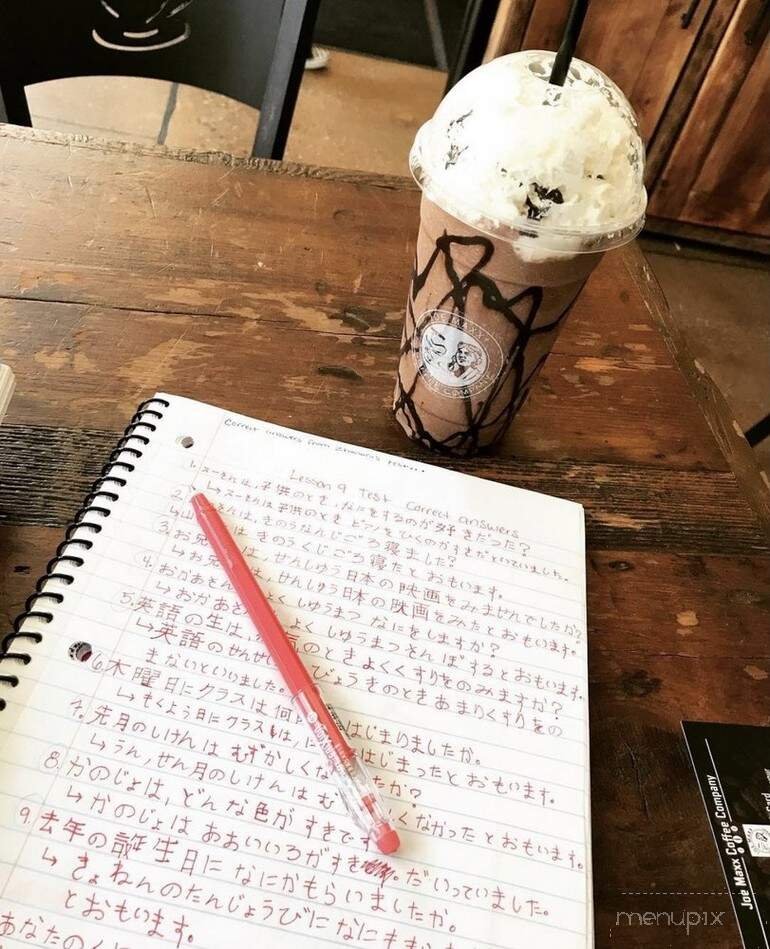 JOE MAXX
COMPANY
Correct answers from
Lesson 9 Test Correct answers
1. スーさんは、子供のとき、なにをするのが好きだった?
↳ スーさんは子供のとき ピアノをひくのがすきだといっていました。
2. は、きのうなんじごろ寝ました?
↳山 は きのうくじごろ寝たとおもいます。
3. お兄 は、せんしゅう日本の映画をみませんでしたか?
↳お兄 は、せんしゅう日本の映画をみたとおもいます。
4. おかあさん よく しゅうまつ なにをしますか?
↳おかあさ よく しゅうまつさんぽするとおもいます。
5. 英語の生は、 気のとき よくくすりをのみますか?
↳英語のせんせ びょうきのとき あまりくすりをの
まないといいました。
6. 木曜日にクラスは何 はじまりましたか。
↳もくよう日にクラスは、に はじまったとおもいます。
7. 先月のしけんは むずかしくな たか?
↳うん、せん月のしけんは む くなかったとおもいます。
8. かのじょは、どんな色が すきです
↳かのじょは あおいいろがすき だ いっていました。
9. 去年の誕生日に なにかもらいましたか。
↳きょねんのたんじょうびに なにも
とおもいます。
あなたの
Joe Maxx Coffee Company
Card
menupix